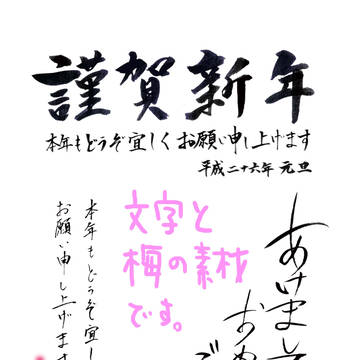 謹賀新年
本年もどうぞ宜しくお願い申し上げます
平成二十六年 元旦
あけまして
おめ
ご
文字と
梅の素材
です。
本年もどうぞ宜し
お願い申し上げます